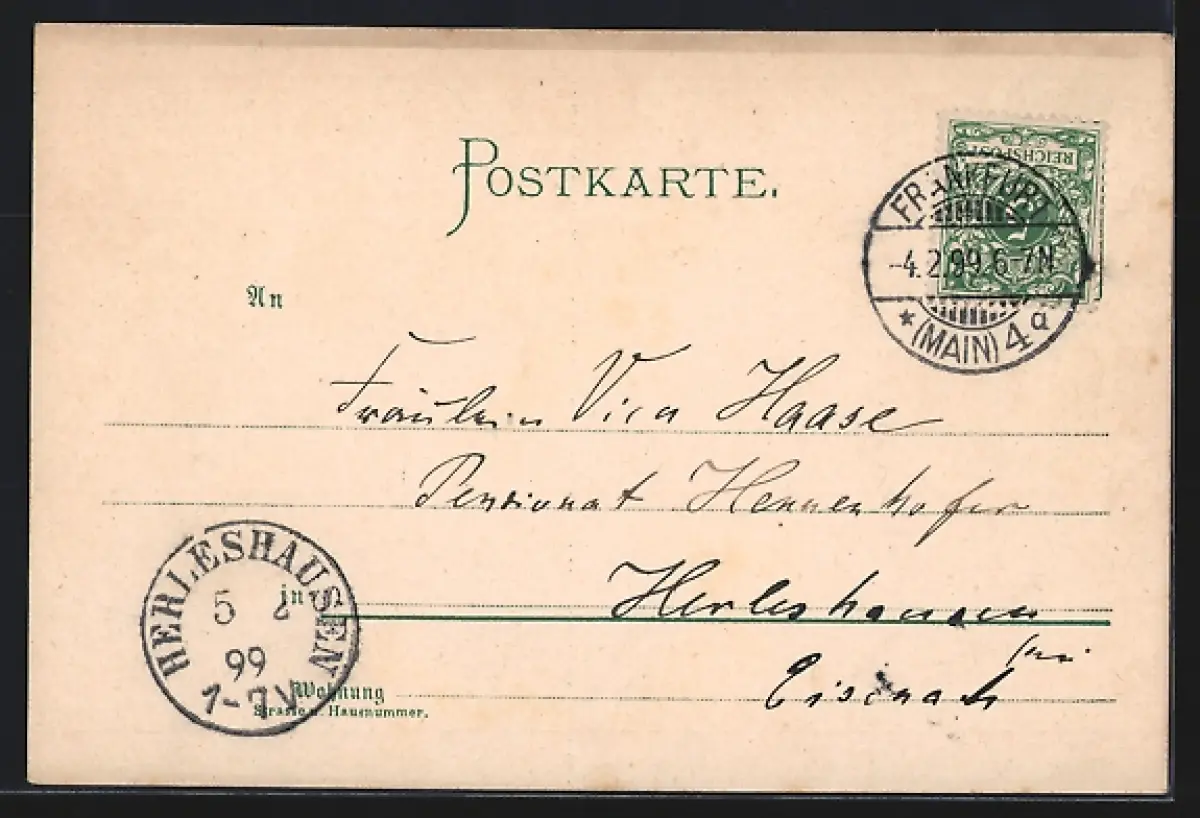 POSTKARTE.
REICHSPOST
5
FRANKFURT
-4.2.99.6-7N
* (MAIN) 4 a
An
Fräulein Vica Haase
Pensionat Hennenhofer
in Herleshausen
bei
Eisenach
Wohnung
Strasse u. Hausnummer.
HERLESHAUSEN
5 2
99
7-7V